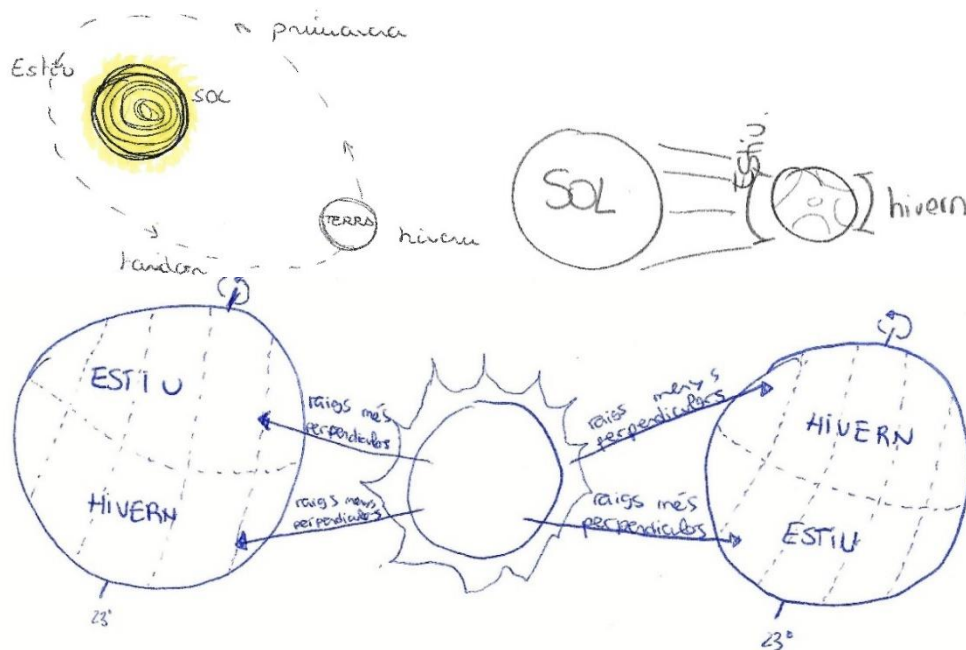 primavera
Estiu
SOL
TERRA
hivern
tardor
SOL
ESTIU.
hivern
ESTIU
HIVERN
23°
raigs més
perpendiculars
raigs menys
perpendiculars
raigs menys
perpendiculars
raigs més
perpendiculars
HIVERN
ESTIU
23°